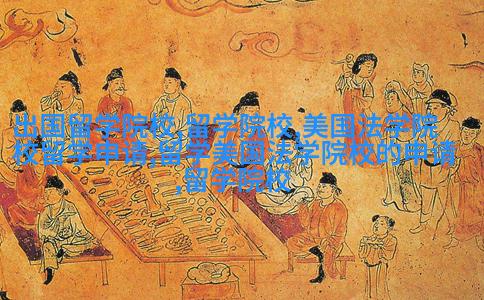 出国留学院校,留学院校,美国法学院
校留学申请,留学美国法学院校的申请
,留学院校